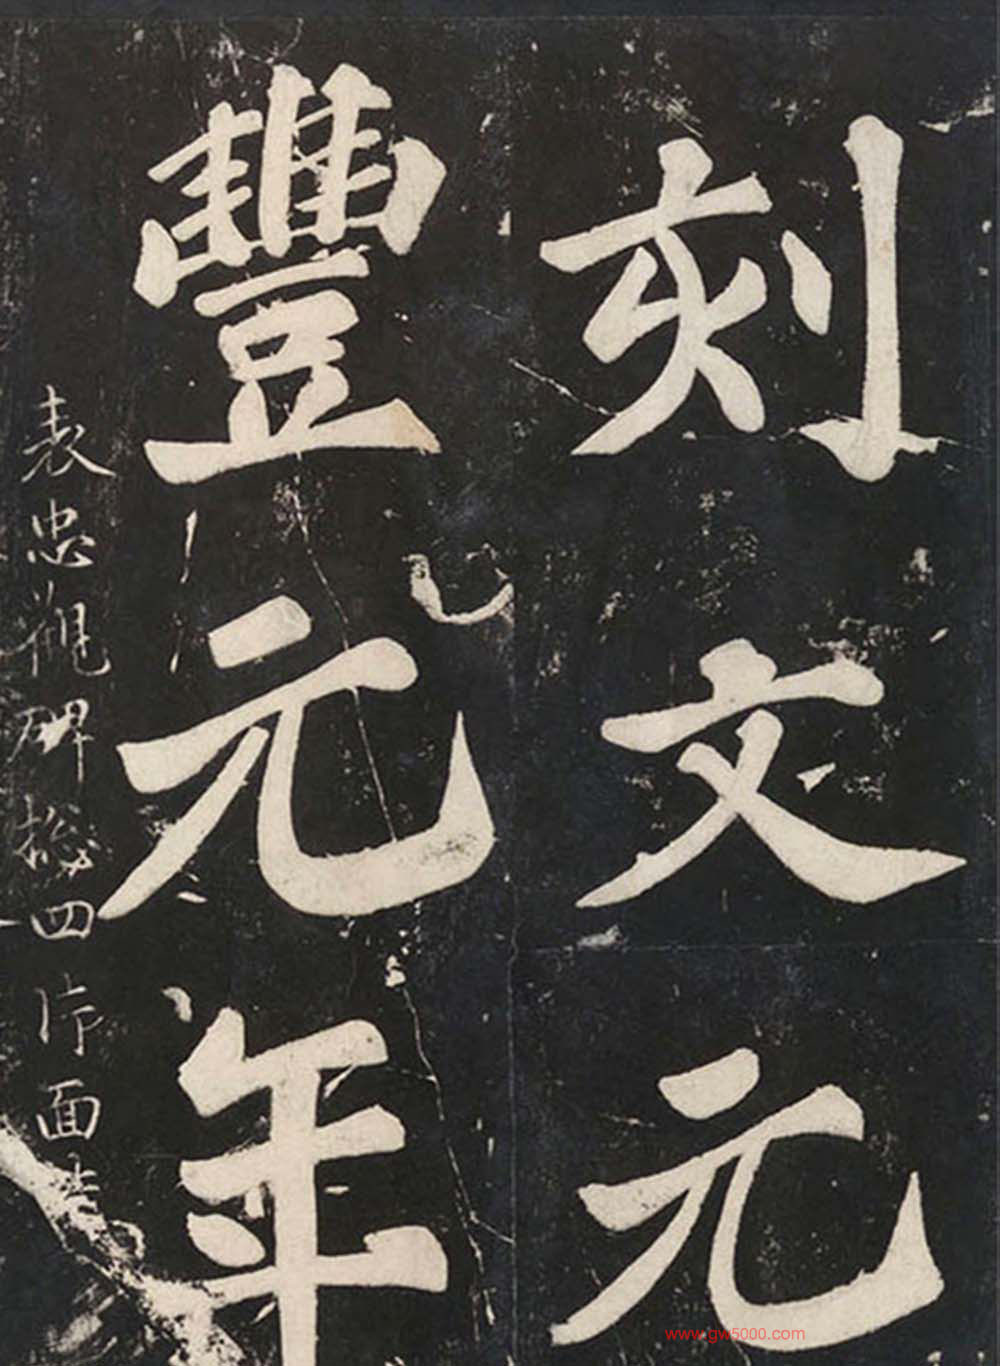 刻文元
豐元年
表忠觀碑捴四片面
www.gw5000.com